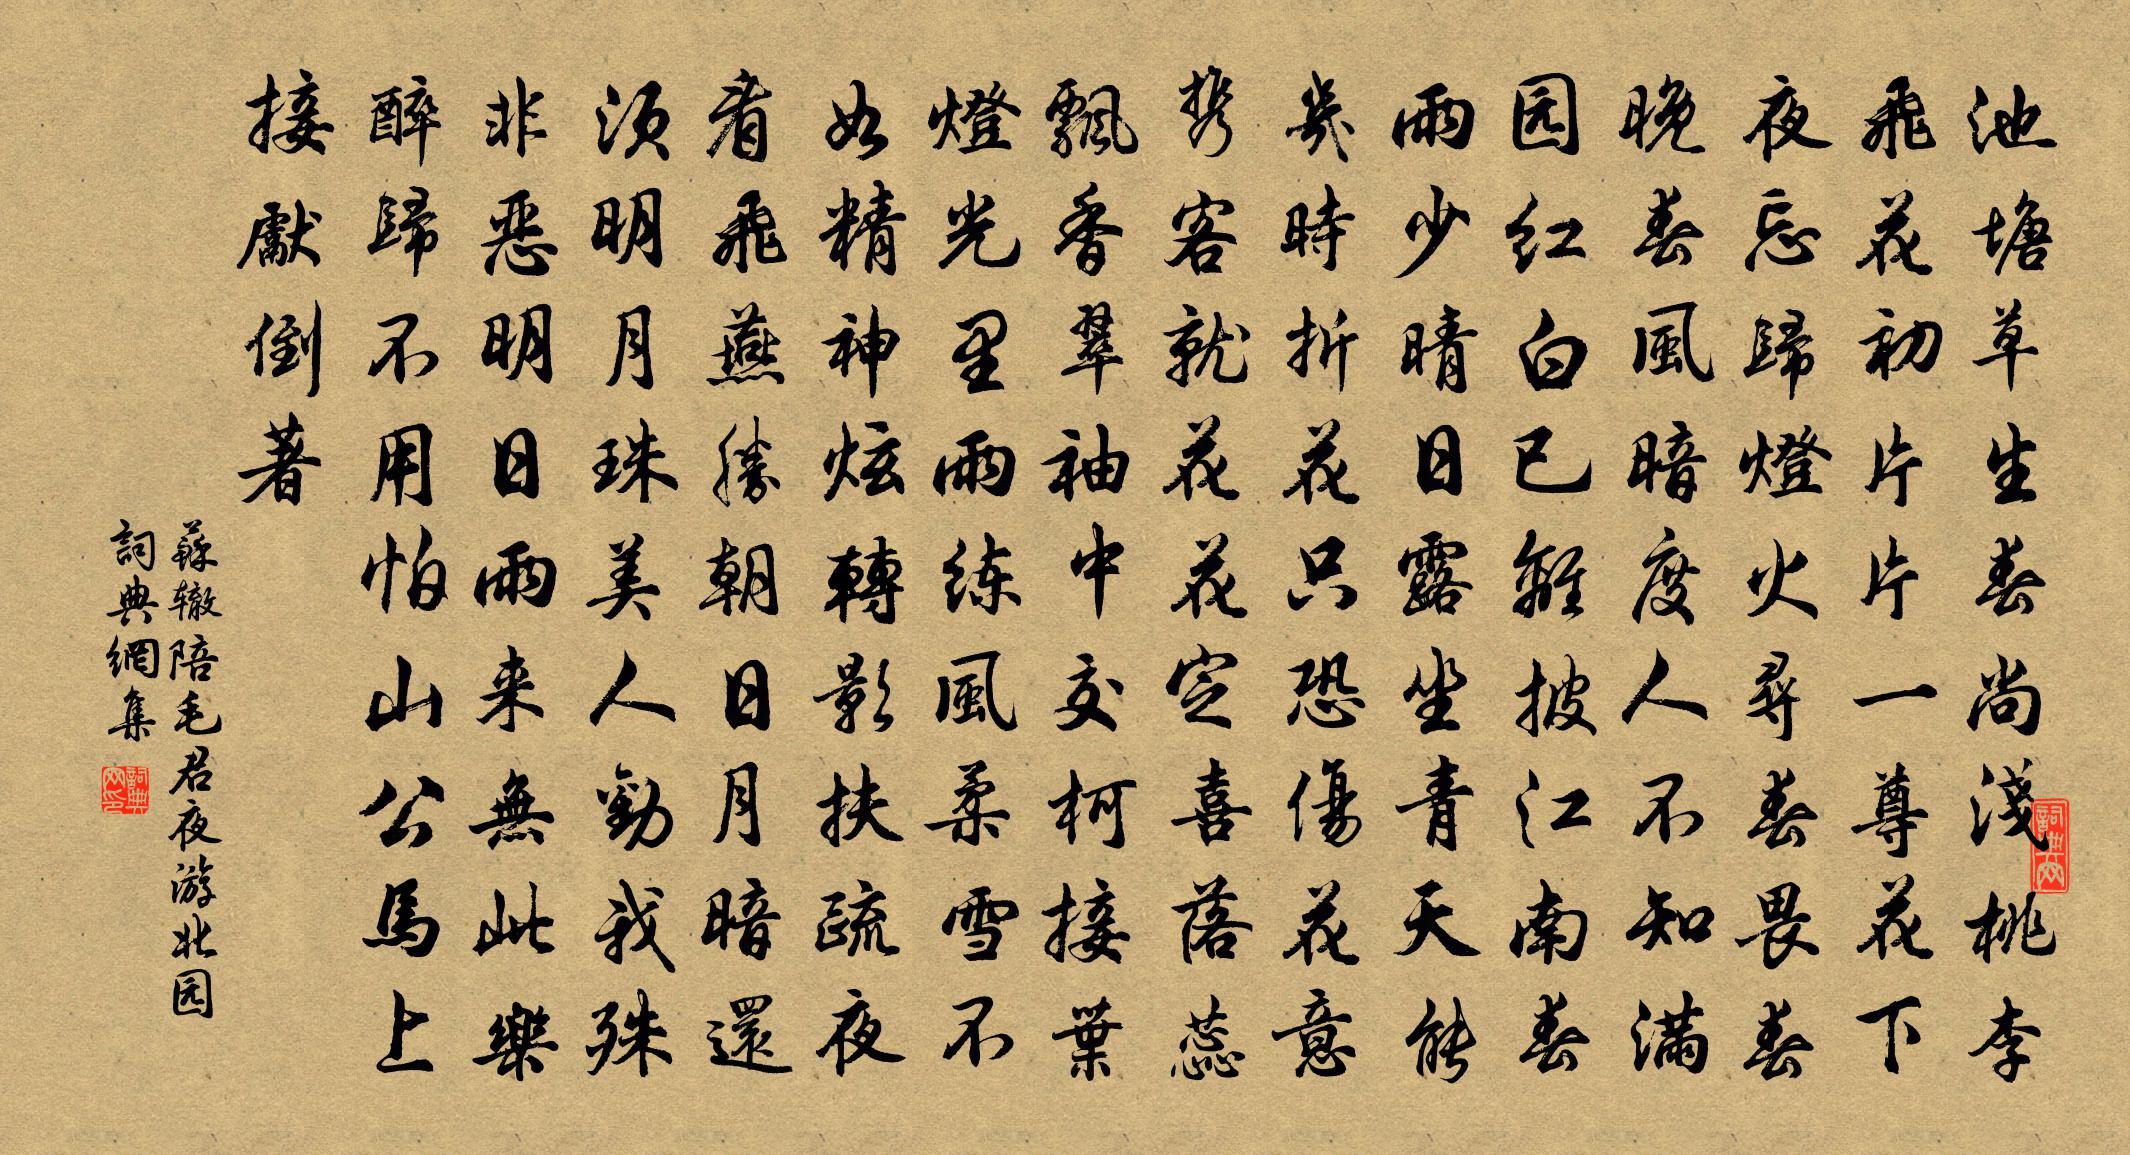 池塘草生春尚淺桃李
飛花初片片一尊花下
夜忘歸燈火尋春畏春
晚春風暗度人不知滿
园红白已離披江南春
雨少晴日露坐青天能
幾時折花只恐傷花意
携客就花花定喜落蕊
飄香翠袖中交柯接葉
燈光里雨练風柔雪不
如精神炫轉影扶疏夜
看飛燕勝朝日月暗還
須明月珠美人勸我殊
非恶明日雨来無此樂
醉歸不用怕山公馬上
接獻倒著
蘇辙陪毛君夜游北园
詞典網集
詞典网印
詞典网